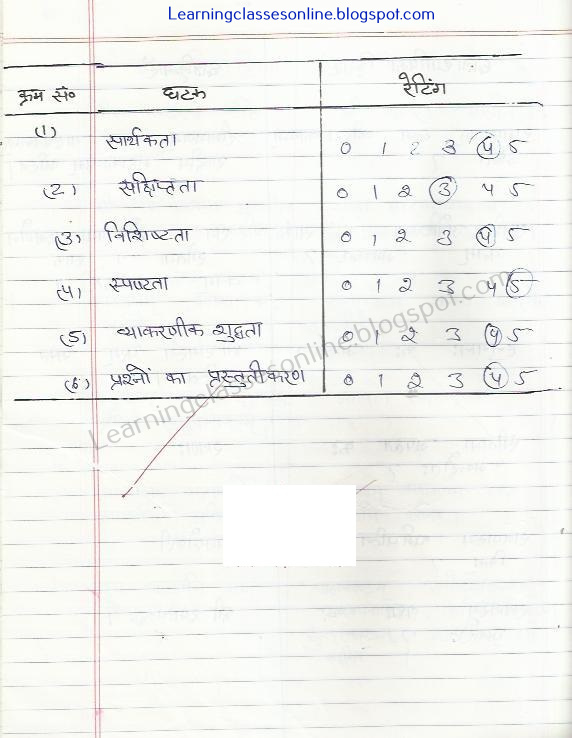 Learningclassesonline.blogspot.com
क्रम सं० घटक रेटिंग
(1) सार्थकता 0 1 2 3 4 5
(2) संक्षिप्तता 0 1 2 3 4 5
(3) विशिष्टता 0 1 2 3 4 5
(4) स्पष्टता 0 1 2 3 4 5
(5) व्याकरणीक शुद्धता 0 1 2 3 4 5
(6) प्रश्नों का प्रस्तुतीकरण 0 1 2 3 4 5
Learningclassesonline.blogspot.com